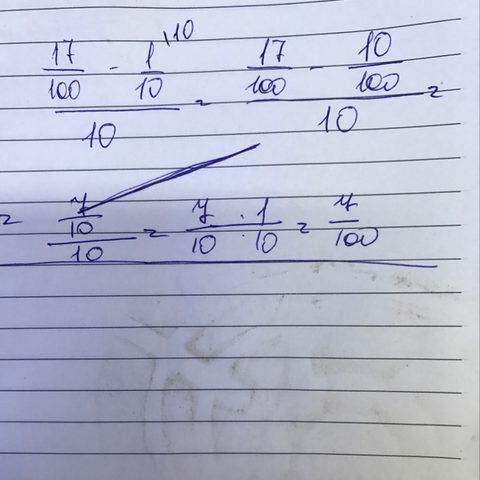 17/100 - 1\10/10 = 17/100 - 10/100 =
10 10
= 7/10/10 = 7/10 · 1/10 = 7/100